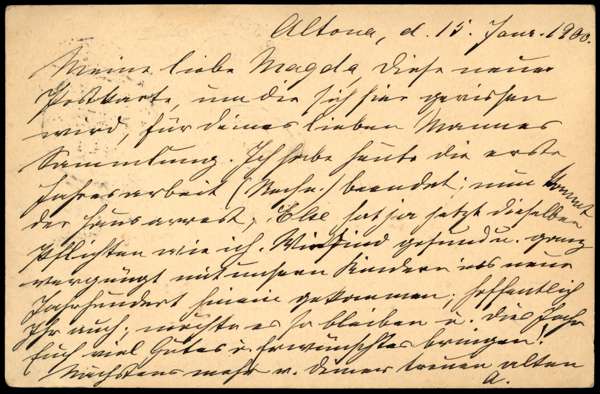 Altona, d. 15. Janr. 1900.
Meine liebe Magda, diese neue
Postkarte, um die sich hier gerissen
wird, für deines lieben Mannes
Sammlung. Ich habe heute die erste
Jahresarbeit beendet; nun kommt
der Hausarrest, Else hat ja jetzt dieselben
Pflichten wie ich. Wir sind gesund u. ganz
vergnügt mit unsern Kindern ins neue
Jahrhundert hinein gekommen; hoffentlich
Ihr auch; möchte es so bleiben u. dies Jahr
Euch viel Gutes u. Erwünschtes bringen!
Nächstens mehr v. deiner treuen alten
A.